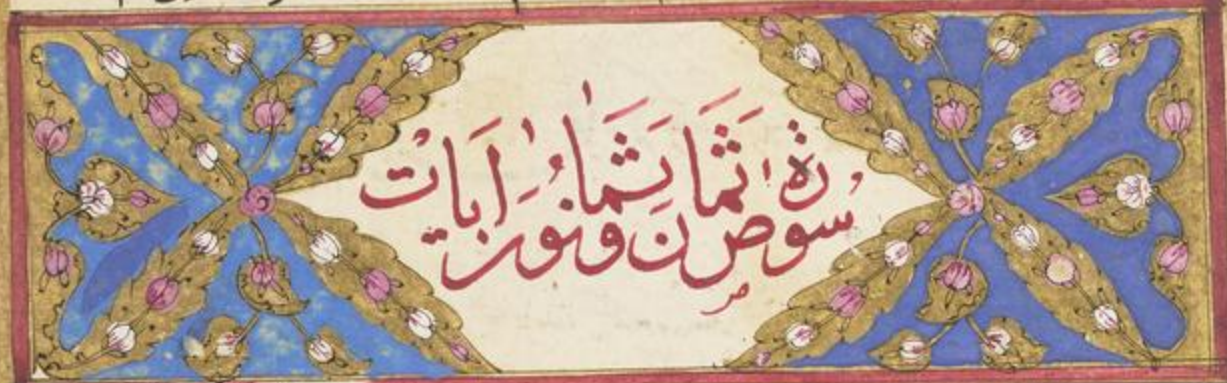 سورة ص ثمان وثمانون ايات